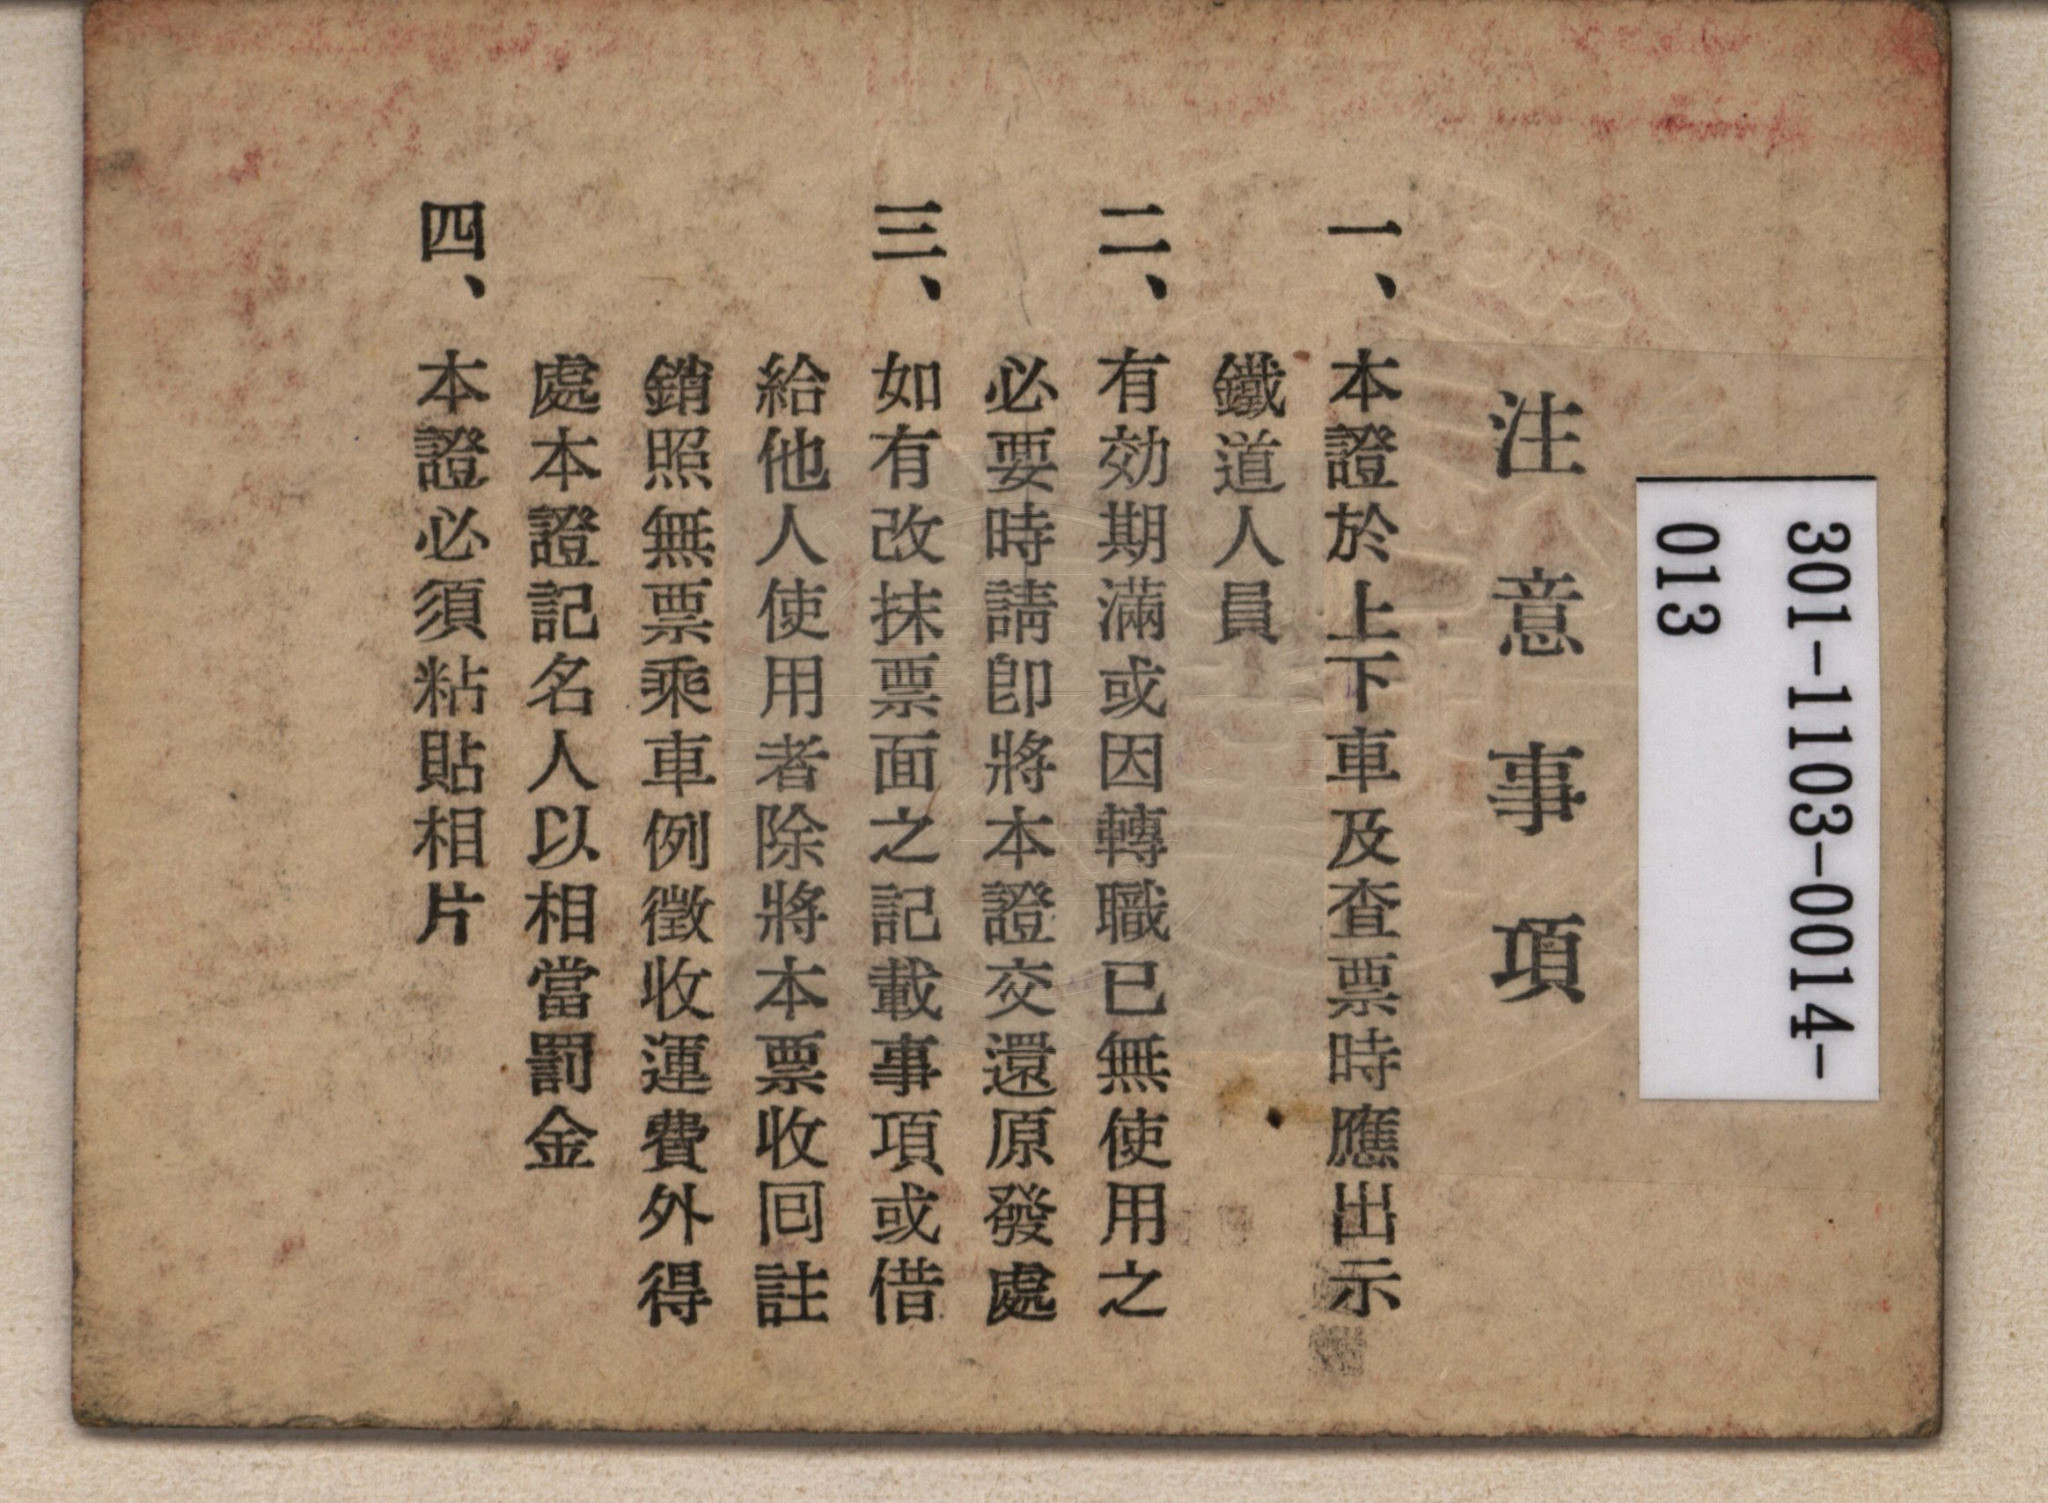 注意事項
一、本證於上下車及査票時應出示
鐵道人員
二、有効期滿或因轉職已無使用之
必要時請卽將本證交還原發處
三、如有改抹票面之記載事項或借
給他人使用者除將本票收回註
銷照無票乘車例徵收運費外得
處本證記名人以相當罰金
四、本證必須粘貼相片
301-1103-0014-
013